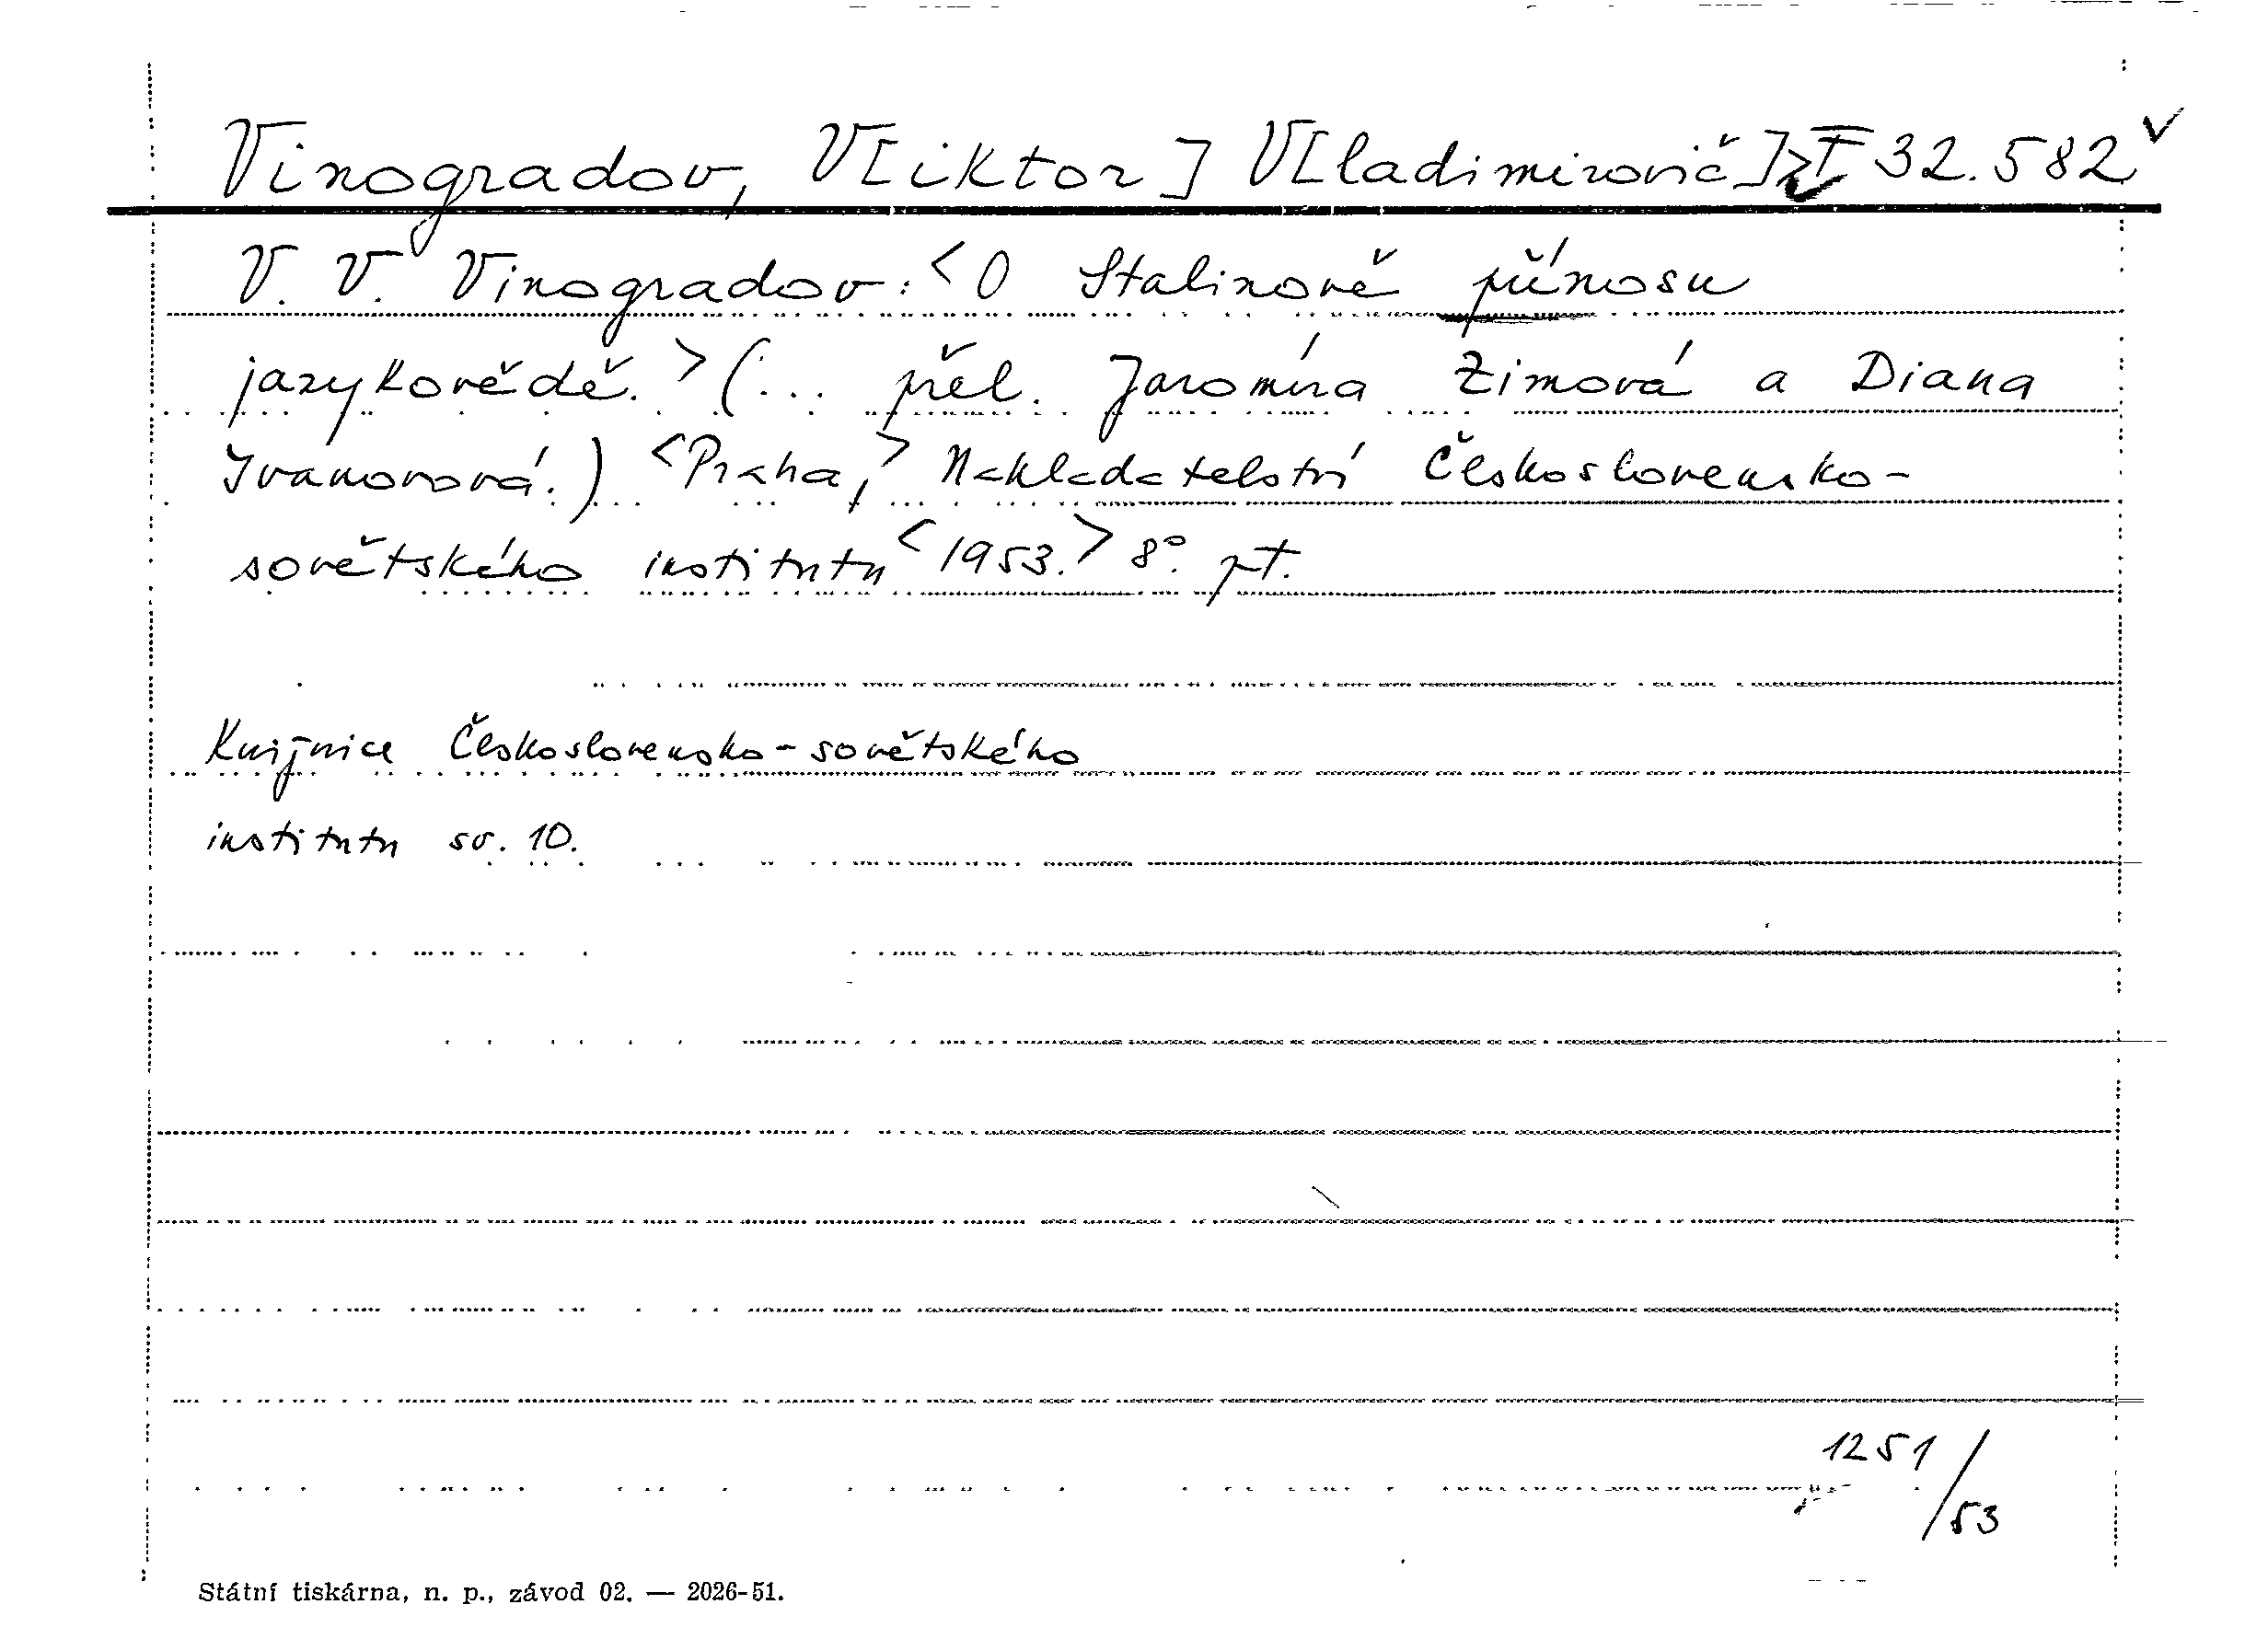 Vinogradov, V[iktor] V[ladimirovič] I 32.582
V. V. Vinogradov: <O Stalinově přínosu
jazykovědě.> (... přel. Jaromíra Zimová a Diana
Ivanovová.) <Praha,> Nakladatelství Československo-
sovětského institutu <1953.> 8°. pt.
Knižnice Československo-sovětského
institutu sv. 10.
1251/53
Státní tiskárna, n. p., závod 02. — 2026-51.